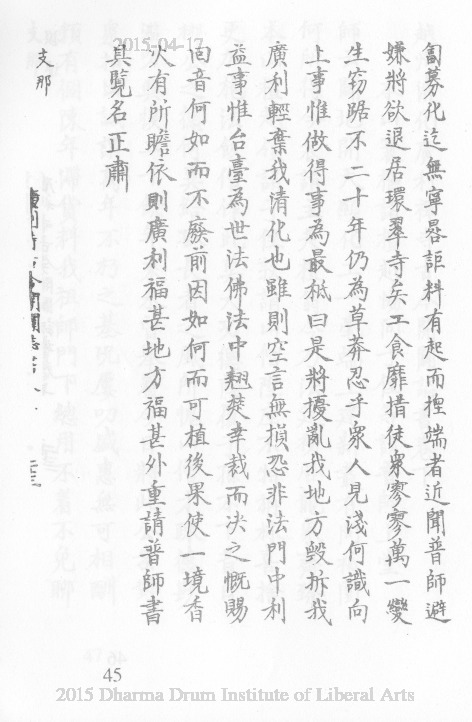 2015-04-17
匐募化迄無寧晷詎料有起而捏端者近聞普師避
嫌將欲退居環翠寺矣工食靡措徒眾寥寥萬一變
生窈踞不二十年仍為草莽忍乎眾人見淺何識向
上事惟做得事為最秪曰是將擾亂我地方毀拆我
廣利輕棄我清化也雖則空言無損恐非法門中利
益事惟台臺為世法佛法中翹楚幸裁而決之慨賜
回音何如而不廢前因如何而可植後果使一境香
火有所瞻依則廣利福甚地方福甚外重請普師書
具覽名正肅
支那
45
2015 Dharma Drum Institute of Liberal Arts